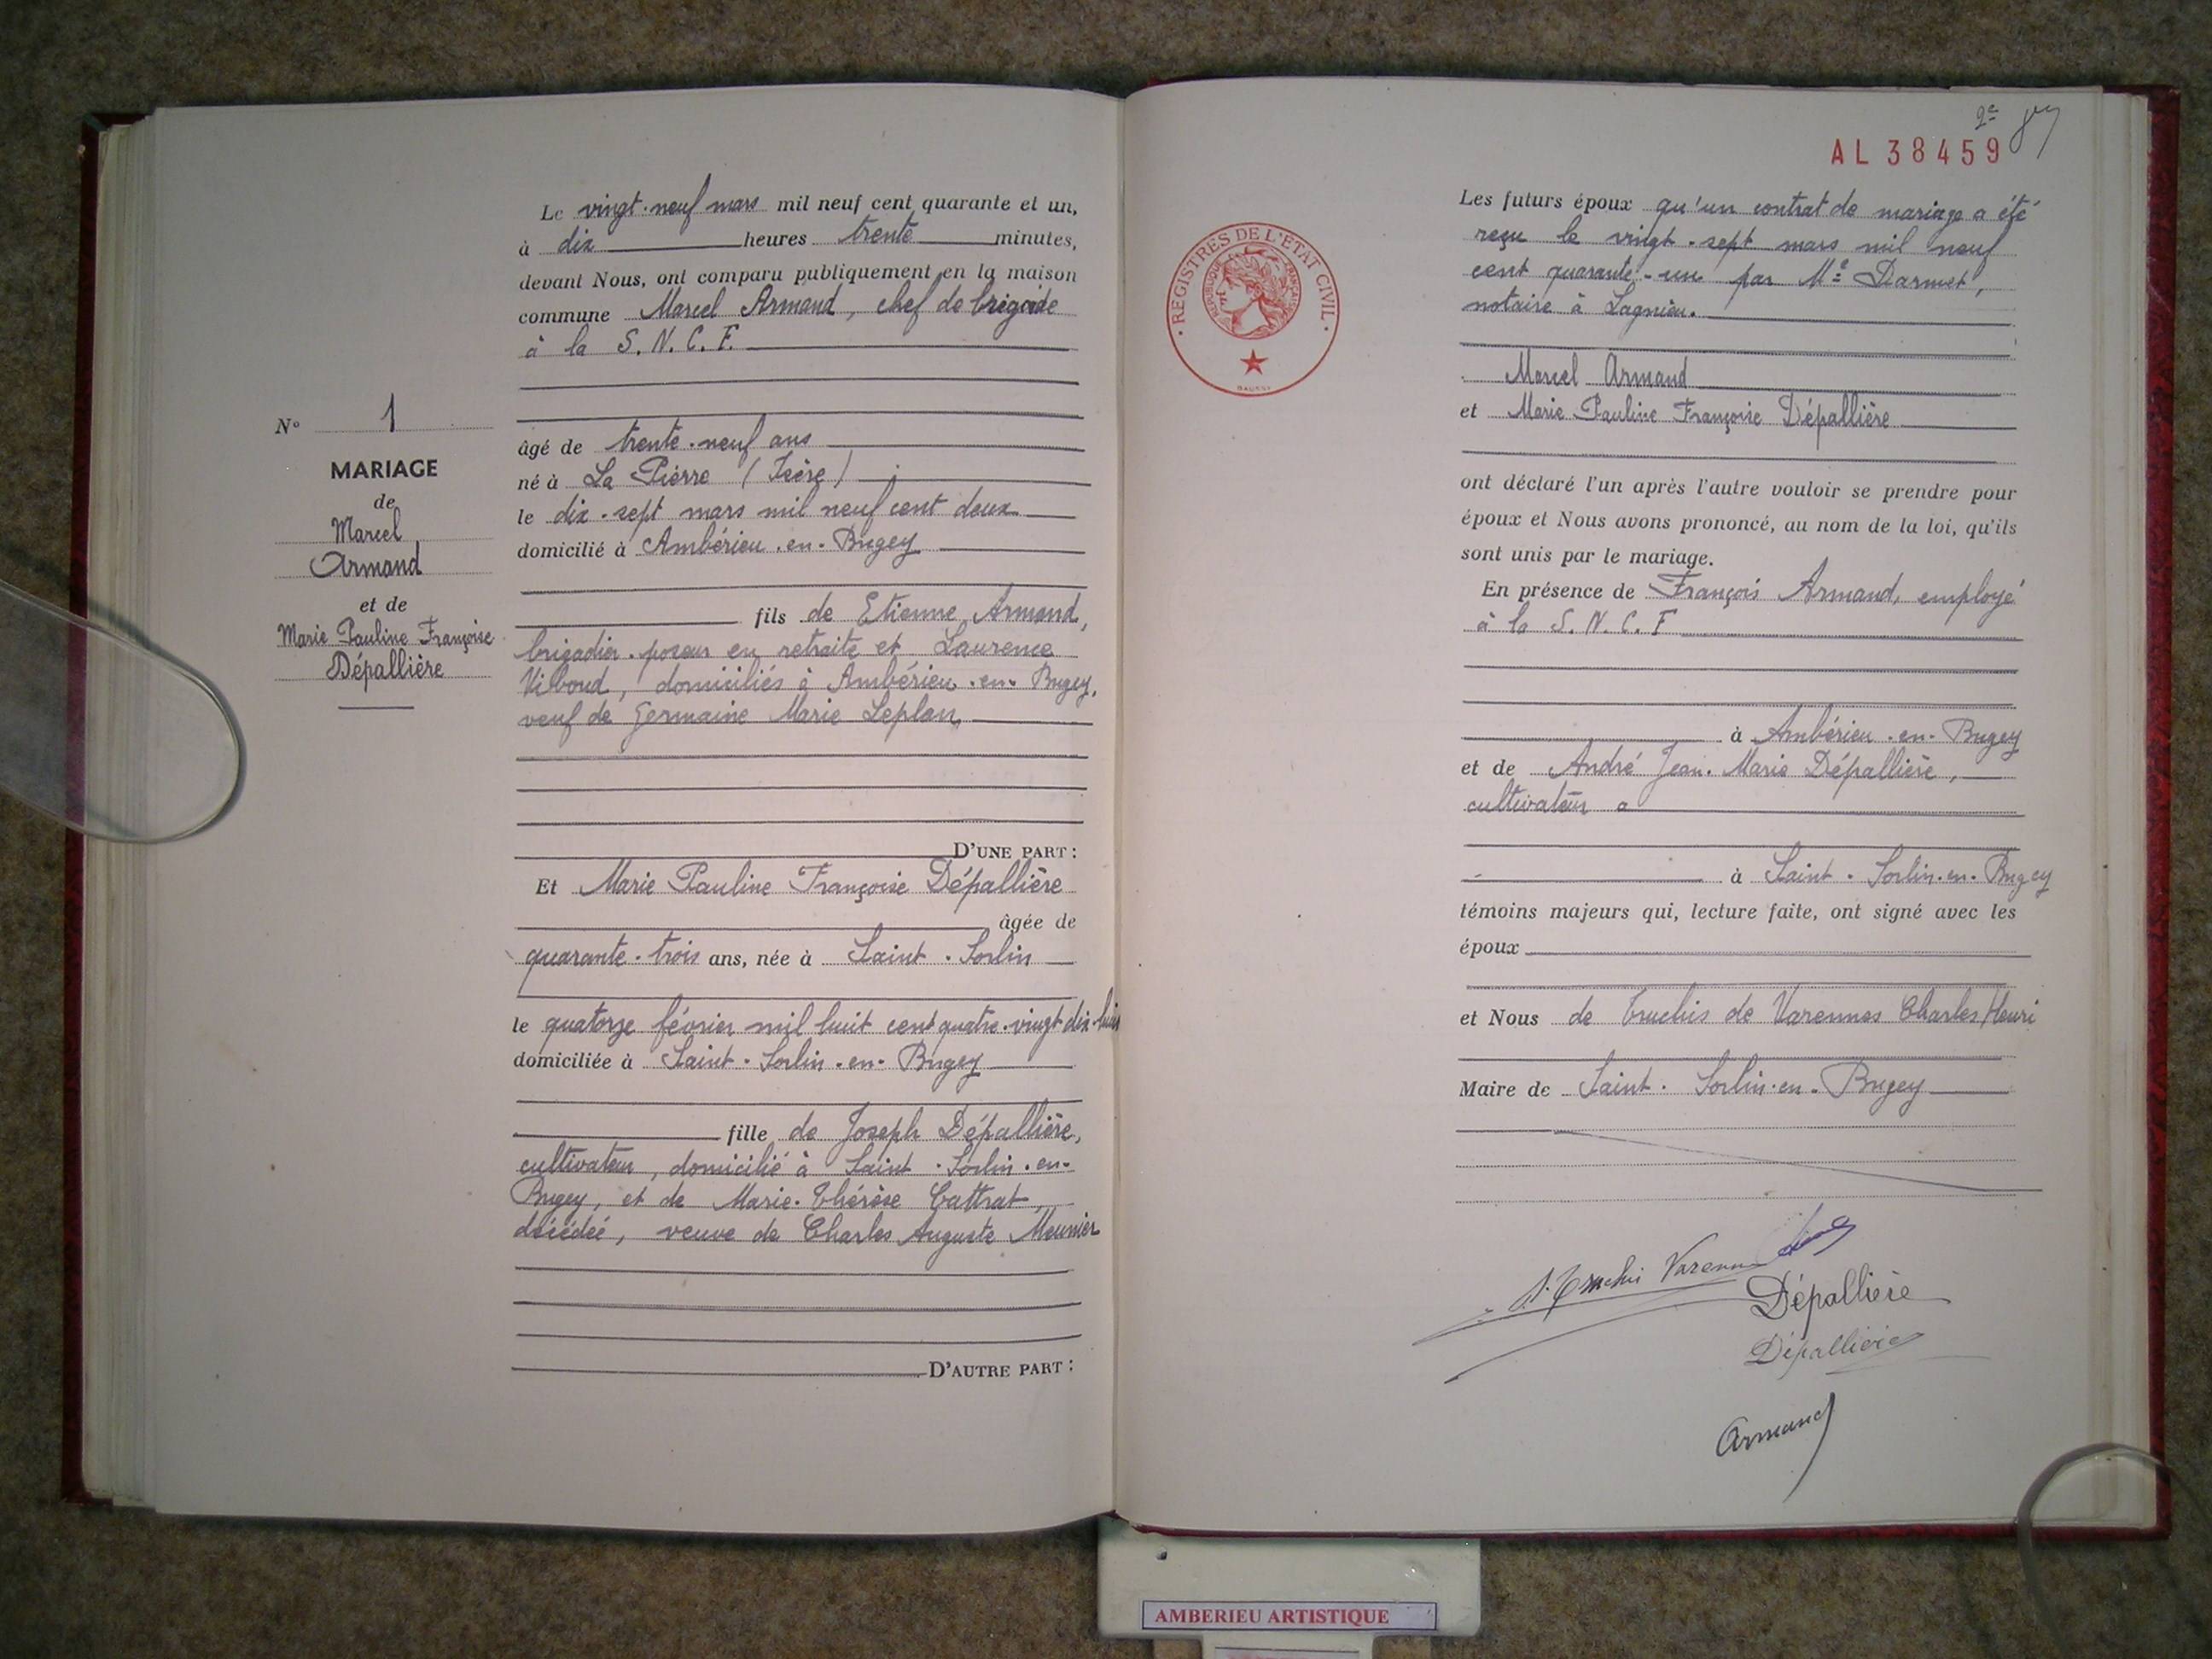 Le vingt-neuf mars mil neuf cent quarante et un,
à dix heures trente minutes,
devant Nous, ont comparu publiquement en la maison
commune Marcel Armand, chef de brigade
à la S.N.C.F.
N° 1
MARIAGE
de
Marcel
Armand
et de
Marie Pauline Françoise
Dépallière
âgé de trente-neuf ans
né à La Pierre (Isère)
le dix-sept mars mil neuf cent deux
domicilié à Ambérieu-en-Bugey
fils de Etienne Armand,
brigadier-poseur en retraite et Laurence
Viboud, domiciliés à Ambérieu-en-Bugey,
veuf de Germaine Marie Leplan
D'UNE PART :
Et Marie Pauline Françoise Dépallière
âgée de
quarante-trois ans, née à Saint-Sorlin
le quatorze février mil huit cent quatre-vingt dix-huit
domiciliée à Saint-Sorlin-en-Bugey
fille de Joseph Dépallière,
cultivateur, domicilié à Saint-Sorlin-en-
Bugey, et de Marie-Thérèse Cattrat,
décédée, veuve de Charles Auguste Meunier
D'AUTRE PART :
2e
AL 38459
REGISTRES DE L'ETAT CIVIL
REPUBLIQUE FRANÇAISE
Les futurs époux qu'un contrat de mariage a été
reçu le vingt-sept mars mil neuf
cent quarante-un par Me Darmet,
notaire à Lagnieu.
Marcel Armand
et Marie Pauline Françoise Dépallière
ont déclaré l'un après l'autre vouloir se prendre pour
époux et Nous avons prononcé, au nom de la loi, qu'ils
sont unis par le mariage.
En présence de François Armand, employé
à la S.N.C.F
à Ambérieu-en-Bugey
et de André Jean-Marie Dépallière,
cultivateur a
à Saint-Sorlin-en-Bugey
témoins majeurs qui, lecture faite, ont signé avec les
époux
et Nous de Truchis de Varennes Charles Henri
Maire de Saint-Sorlin-en-Bugey
Dépallière
Dépallière
Armand
AMBERIEU ARTISTIQUE